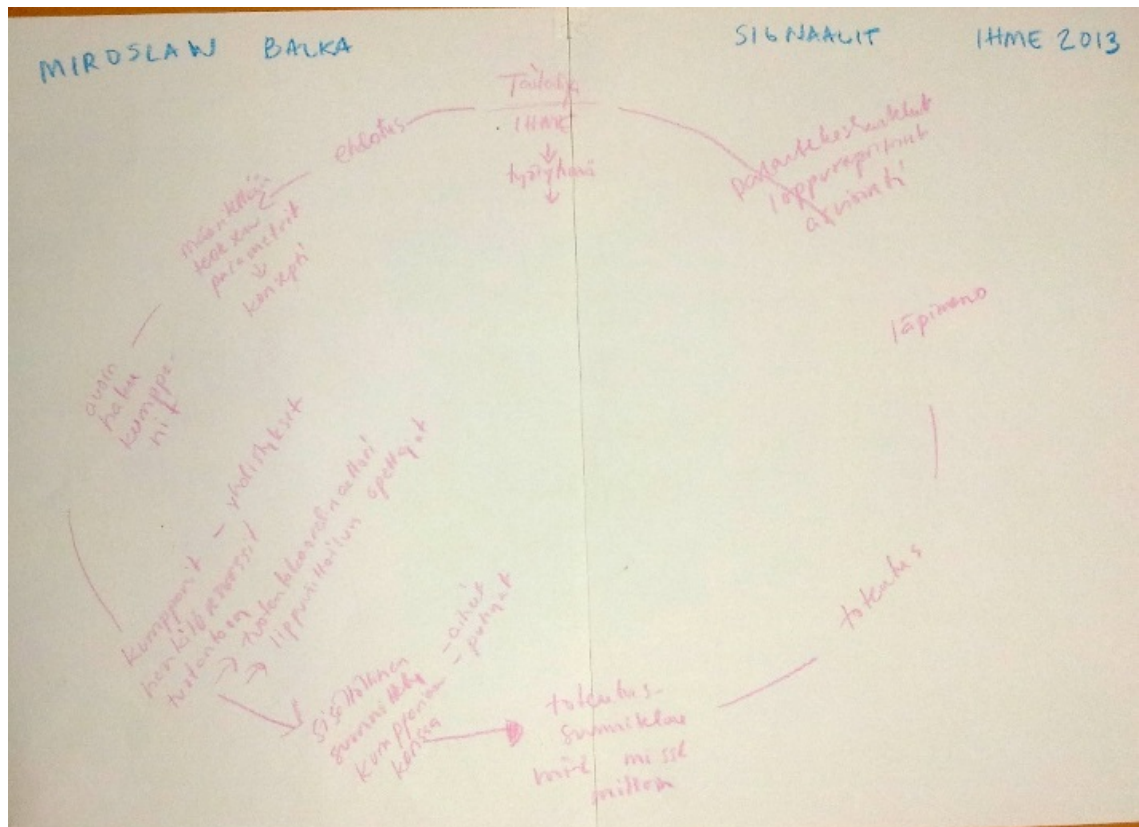 MIROSLAW BALKA
SIGNAALIT IHME 2013
Taiteilija
IHME
työryhmä
ehdotus
määritellään
teoksen
parametrit
konsepti
avoin
haku
kumppa-
nit
kumppanit – yhdistykset
henkilöresurssit
tuotantoon
→ tuotantokoordinaattori
→ lippuviittoilun opettajat
Sisällöllinen
suunnittelu
kumppanien
kanssa
– aiheet
– puhujat
toteutus-
suunnitelma
mitä missä
milloin
toteutus
läpimeno
loppuraportointi
arviointi